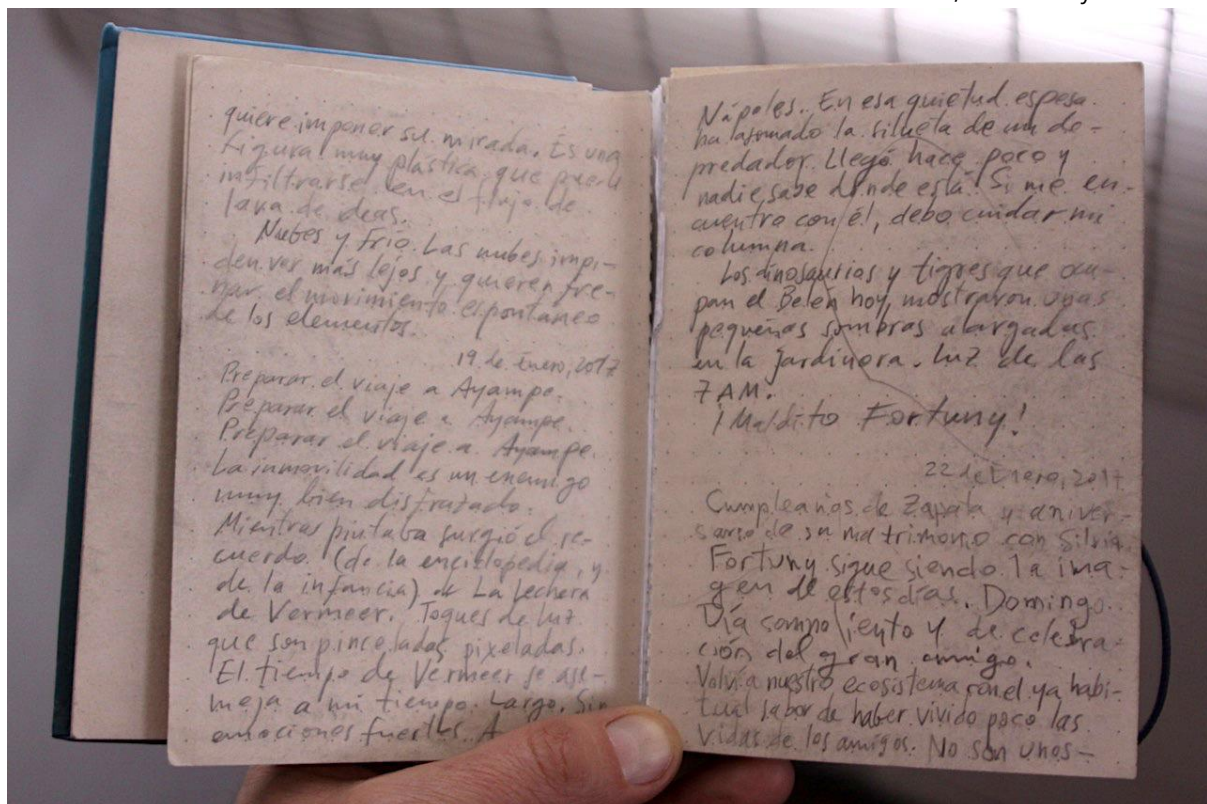 quiere imponer su mirada. Es una
figura muy plástica que puede
infiltrarse en el flujo de
lava de ideas.
Nubes y frío. Las nubes impi-
den ver más lejos y quieren fre-
nar el movimiento espontaneo
de los elementos.
19 de Enero, 2017
Preparar el viaje a Ayampe.
Preparar el viaje a Ayampe.
Preparar el viaje a Ayampe.
La inmovilidad es un enemigo
muy bien disfrazado.
Mientras pintaba surgió el re-
cuerdo (de la enciclopedia, y
de la infancia) de La Lechera
de Vermeer. Toques de luz
que son pinceladas pixeladas.
El tiempo de Vermeer se ase-
meja a mi tiempo. Largo. Sin
emociones fuertes. A
Nápoles. En esa quietud espesa
ha asomado la silueta de un de-
predador. Llegó hace poco y
nadie sabe dónde está. Si me en-
cuentro con él, debo cuidar mi
columna.
Los dinosaurios y tigres que ocu-
pan el Belén hoy, mostraron unas
pequeñas sombras alargadas
en la jardinera. Luz de las
7 AM.
¡Maldito Fortuny!
22 de Enero, 2017
Cumpleaños de Zapata y aniver-
sario de su matrimonio con Silvia
Fortuny sigue siendo la ima-
gen de estos días. Domingo.
Día somnoliento y de celebra-
ción del gran amigo.
Volví a nuestro ecosistema con el ya habi-
tual sabor de haber vivido poco las
vidas de los amigos. No son unos-